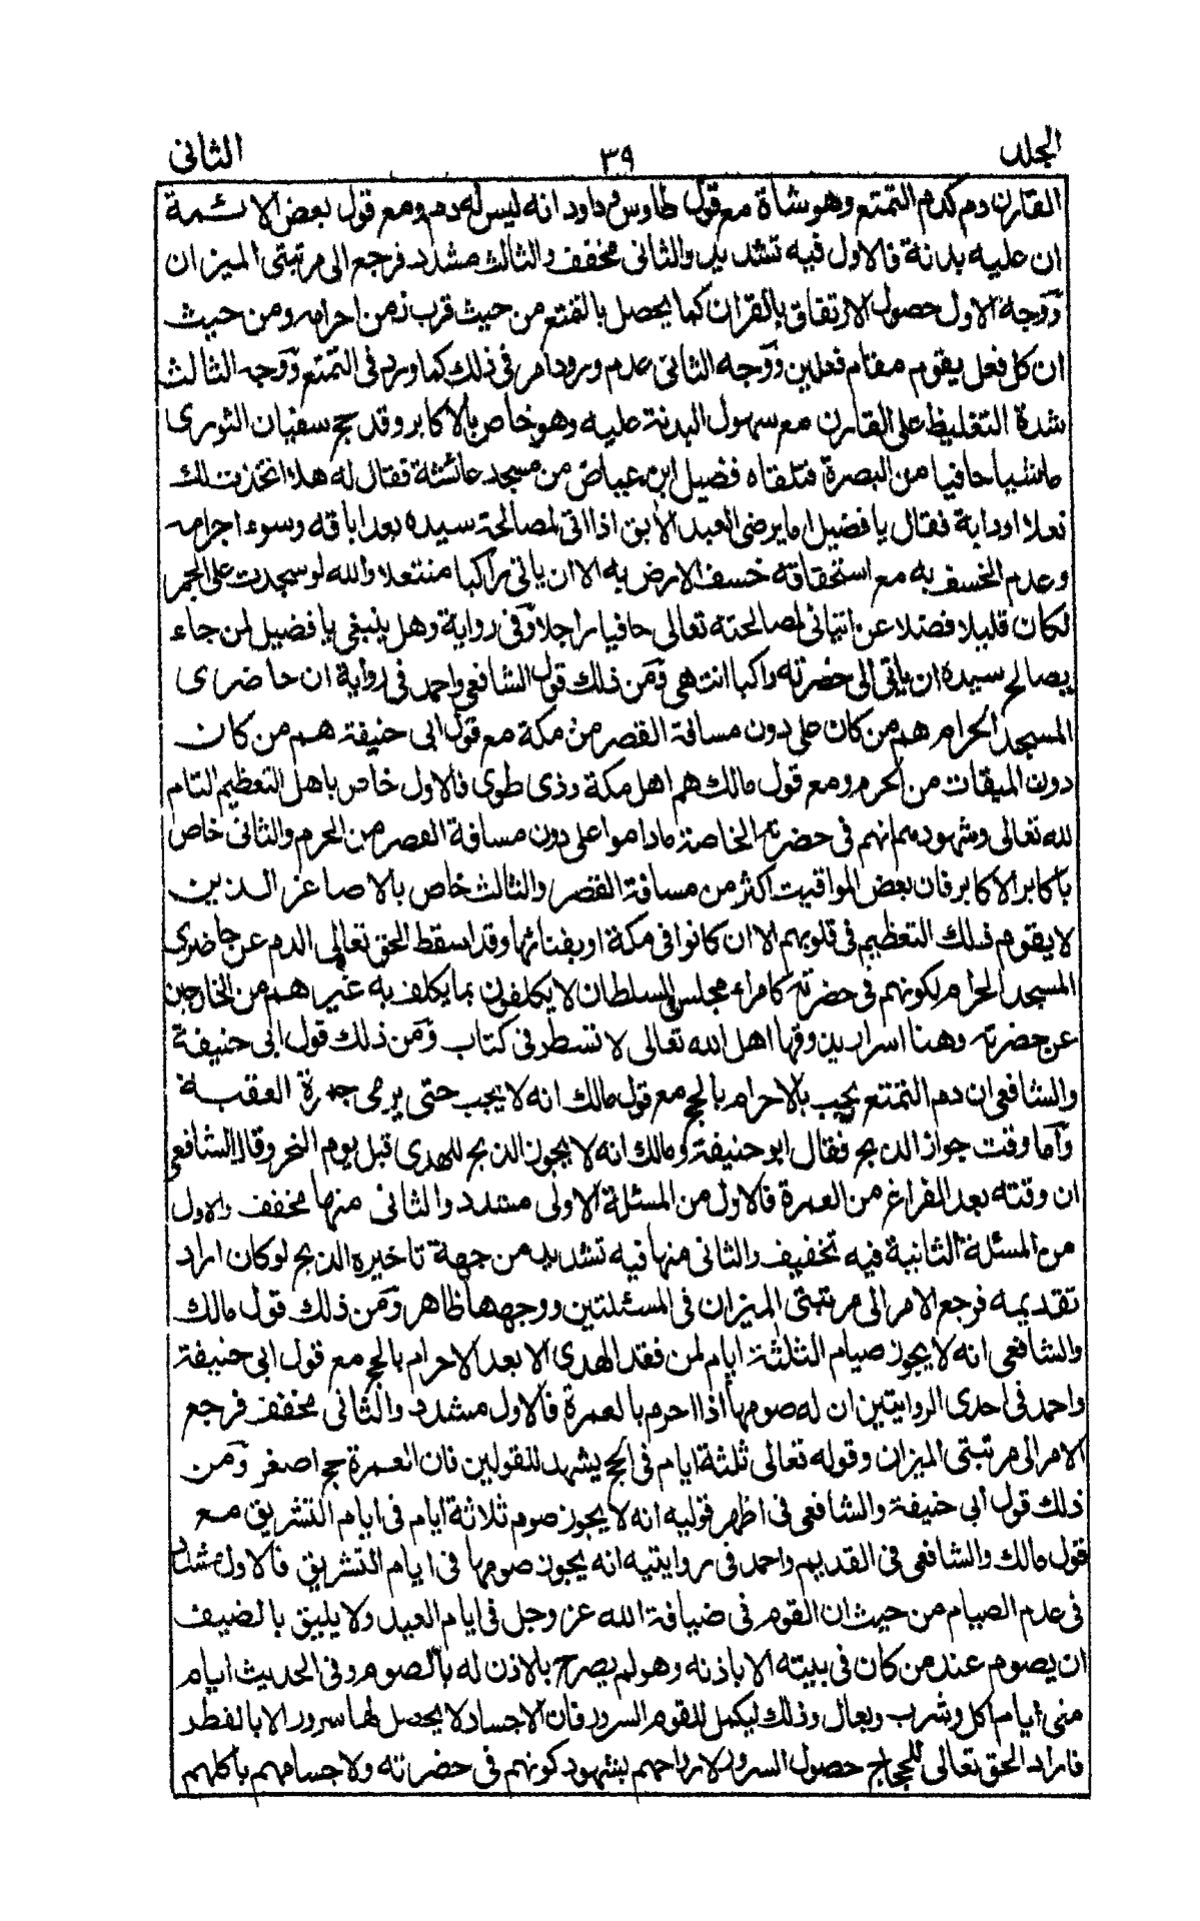 المجلد ٣٩ الثانى
القارن دم كدم التمتع وهو شاة مع قول طاوس وداود انه ليس له دم ومع قول بعض الائمة
ان عليه بدنة فالاول فيه تشديد والثانى مخفف والثالث مشدد فرجع الى مرتبتى الميزان
ووجه الاول حصول الارتفاق بالقران كما يحصل بالتمتع من حيث قرب زمن احرامه ومن حيث
ان كل فعل يقوم مقام فعلين ووجه الثانى عدم ورود امر فى ذلك كما ورد فى التمتع ووجه الثالث
شدة التغليظ على القارن مع سهول البدنة عليه وهو خاص بالاكابر وقد حج سفيان الثورى
ماشيا حافيا من البصرة فتلقاه فضيل ابن عياض من مسجد عائشة فقال له هلا اتخذت لك
نعلا او دابة فقال يا فضيل اما يرضى العبد الابق اذا اتى لمصالحة سيده بعد اباقه وسوء اجرامه
وعدم الخسف به مع استحقاقه خسف الارض به الا ان ياتى راكبا منتعلا والله لو سجدت على الجمر
لكان قليلا فضلا عن اتيانى لمصالحته تعالى حافيا راجلا وفى رواية وهل ينبغى يا فضيل لمن جاء
يصالح سيده ان ياتى الى حضرته راكبا انتهى ومن ذلك قول الشافعى واحمد فى رواية ان حاضرى
المسجد الحرام هم من كان على دون مسافة القصر من مكة مع قول ابى حنيفة هم من كان
دون الميقات من الحرم ومع قول مالك هم اهل مكة وذى طوى فالاول خاص باهل التعظيم التام
لله تعالى وشهودهم انهم فى حضرته الخاصة ماداموا على دون مسافة القصر من الحرم والثانى خاص
باكابر الاكابر فان بعض المواقيت اكثر من مسافة القصر والثالث خاص بالاصاغر الذين
لا يقوم ذلك التعظيم فى قلوبهم الا ان كانوا فى مكة او بفنائها وقد اسقط الحق تعالى الدم عن حاضرى
المسجد الحرام لكونهم فى حضرته كامراء مجلس السلطان لا يكلفون بما يكلف به غيرهم من الخارجين
عن حضرته وهنا اسرار يذوقها اهل الله تعالى لا تسطر فى كتاب ومن ذلك قول ابى حنيفة
والشافعى ان دم التمتع يجب بالاحرام بالحج مع قول مالك انه لا يجب حتى يرمى جمرة العقبة
واما وقت جواز الذبح فقال ابو حنيفة ومالك انه لا يجوز الذبح للهدى قبل يوم النحر وقال الشافعى
ان وقته بعد الفراغ من العمرة فالاول من المسئلة الاولى مشدد والثانى منها مخفف والاول
من المسئلة الثانية فيه تخفيف والثانى منها فيه تشديد من جهة تاخيره الذبح لو كان اراد
تقديمه فرجع الامر الى مرتبتى الميزان فى المسئلتين ووجههما ظاهر ومن ذلك قول مالك
والشافعى انه لا يجوز صيام الثلثة ايام لمن فقد الهدى الا بعد الاحرام بالحج مع قول ابى حنيفة
واحمد فى احدى الروايتين ان له صومها اذا احرم بالعمرة فالاول مشدد والثانى مخفف فرجع
الامر الى مرتبتى الميزان وقوله تعالى ثلثة ايام فى الحج يشهد للقولين فان العمرة حج اصغر ومن
ذلك قول ابى حنيفة والشافعى فى اظهر قوليه انه لا يجوز صوم ثلاثة ايام فى ايام التشريق مع
قول مالك والشافعى فى القديم واحمد فى روايتيه انه يجوز صومها فى ايام التشريق فالاول مشدد
فى عدم الصيام من حيث ان القوم فى ضيافة الله عز وجل فى ايام العيد ولا يليق بالضيف
ان يصوم عند من كان فى بيته الا باذنه وهو لم يصرح بالاذن له بالصوم وفى الحديث ايام
منى ايام اكل وشرب وبعال وذلك ليكمل للقوم السرور فان الاجساد لا يحصل لها سرور الا بالفطر
فاراد الحق تعالى للحجاج حصول السرور لارواحهم بشهود كونهم فى حضرته ولاجسامهم باكلهم